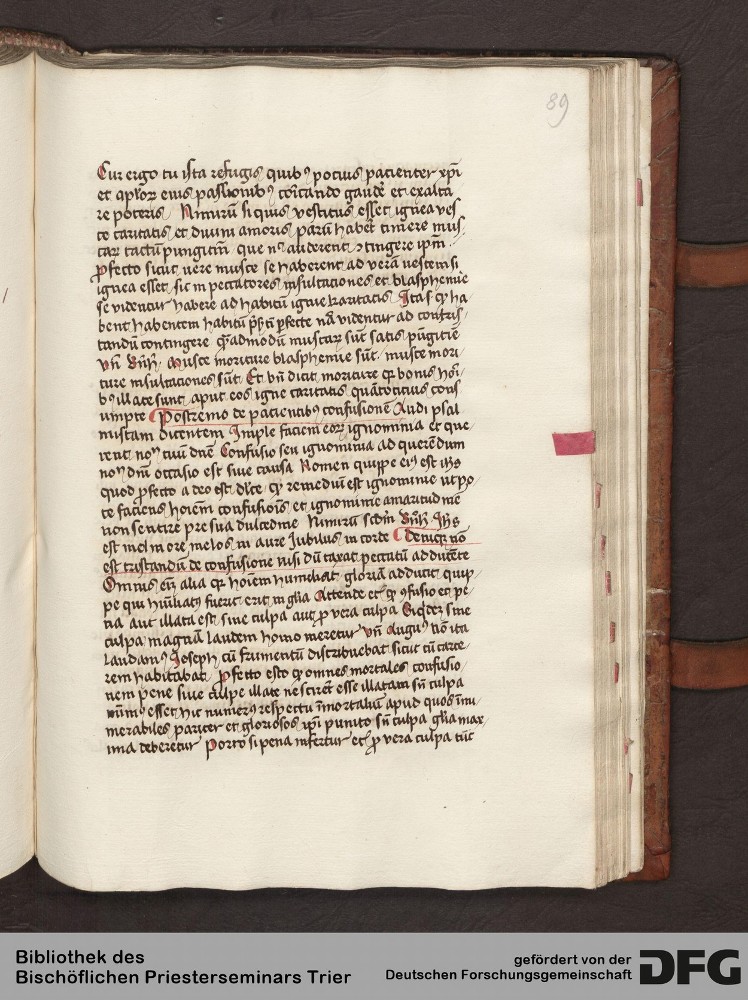 89
Cur ergo tu ista refugis quibꝰ pocius pacienter xp̄i
et ap̄loꝝ eius passionibꝰ cōicando gaude̅ et exalta
re poteris Nimirū si quis vestitus esset ignea ves
te caritatis et diuini amoris parū haber̅ timere mus
caꝝ tactū pungitiū que nō auderent ↄtingere ip̄m
ꝓfecto sicut vere musce se haberent ad verā vestem si
ignea esset sic in peccatores insultaciones et blasphemie
se videntur habere ad habitū igne karitatis Ita ꝙ ha
bent habentem habitū ꝑfecte nō videntur ad contris
tandū contingere quēadmodū muscaꝝ sūt satis pūgitie
vn̄ Musce moriture blasphemie sūt musce mori
ture insultaciones sūt Et bn̄ dicit moriture qꝛ bonis hoī
bꝰ illate sunt aput eos igne caritatis quātocicius cons
umpte Postremo de pacientibꝰ confusionē Audi psal
mistam dicentem Imple faciem eoꝝ ignominia et que
rent nomē tuū dn̄e Confusio seu ignominia ad querēdum
nomē dn̄i occasio est siue causa Nomen quippe eiꝰ est ih̄s
quod ꝓfecto a deo est dulce ꝙ remediū est ignominie vtpo
te faciens hoīem confusiois et ignominie amaritudinē
non sentire pre sua dulcedine Nimirū scd̄m Ih̄s
est mel in ore melos in aure Iubilus in corde Denique nō
est tristandū de confusione nisi dū taxat peccatū adducēte
Omnis em̄ alia qꝛ hoīem humiliat gloriā adducit quip
pe qui hūiliatꝰ fuerit erit in gl̄ia Attende et ꝙ ↄfusio et pe
na aut illata est sine culpa aut ꝓ vera culpa Siqⁱdē sine
culpa magnā laudem homo meretur vn̄ Augus nō ita
laudamꝰ Ioseph cū frumentū distribuebat sicut cū carce
rem habitabat Ꝓfecto esto ꝙ omnes mortales confusio
nem pene siue culpe illate nescirēt esse illatam sn̄ culpa
esset hic numerꝰ respectu īmortaliū apud quos īnu
merabiles pariter et gloriosos ip̄i punito sn̄ culpa gl̄ia max
ima deberetur Porro si pena infertur et ꝓ vera culpa tūc
Bibliothek des
Bischöflichen Priesterseminars Trier
gefördert von der
Deutschen Forschungsgemeinschaft DFG